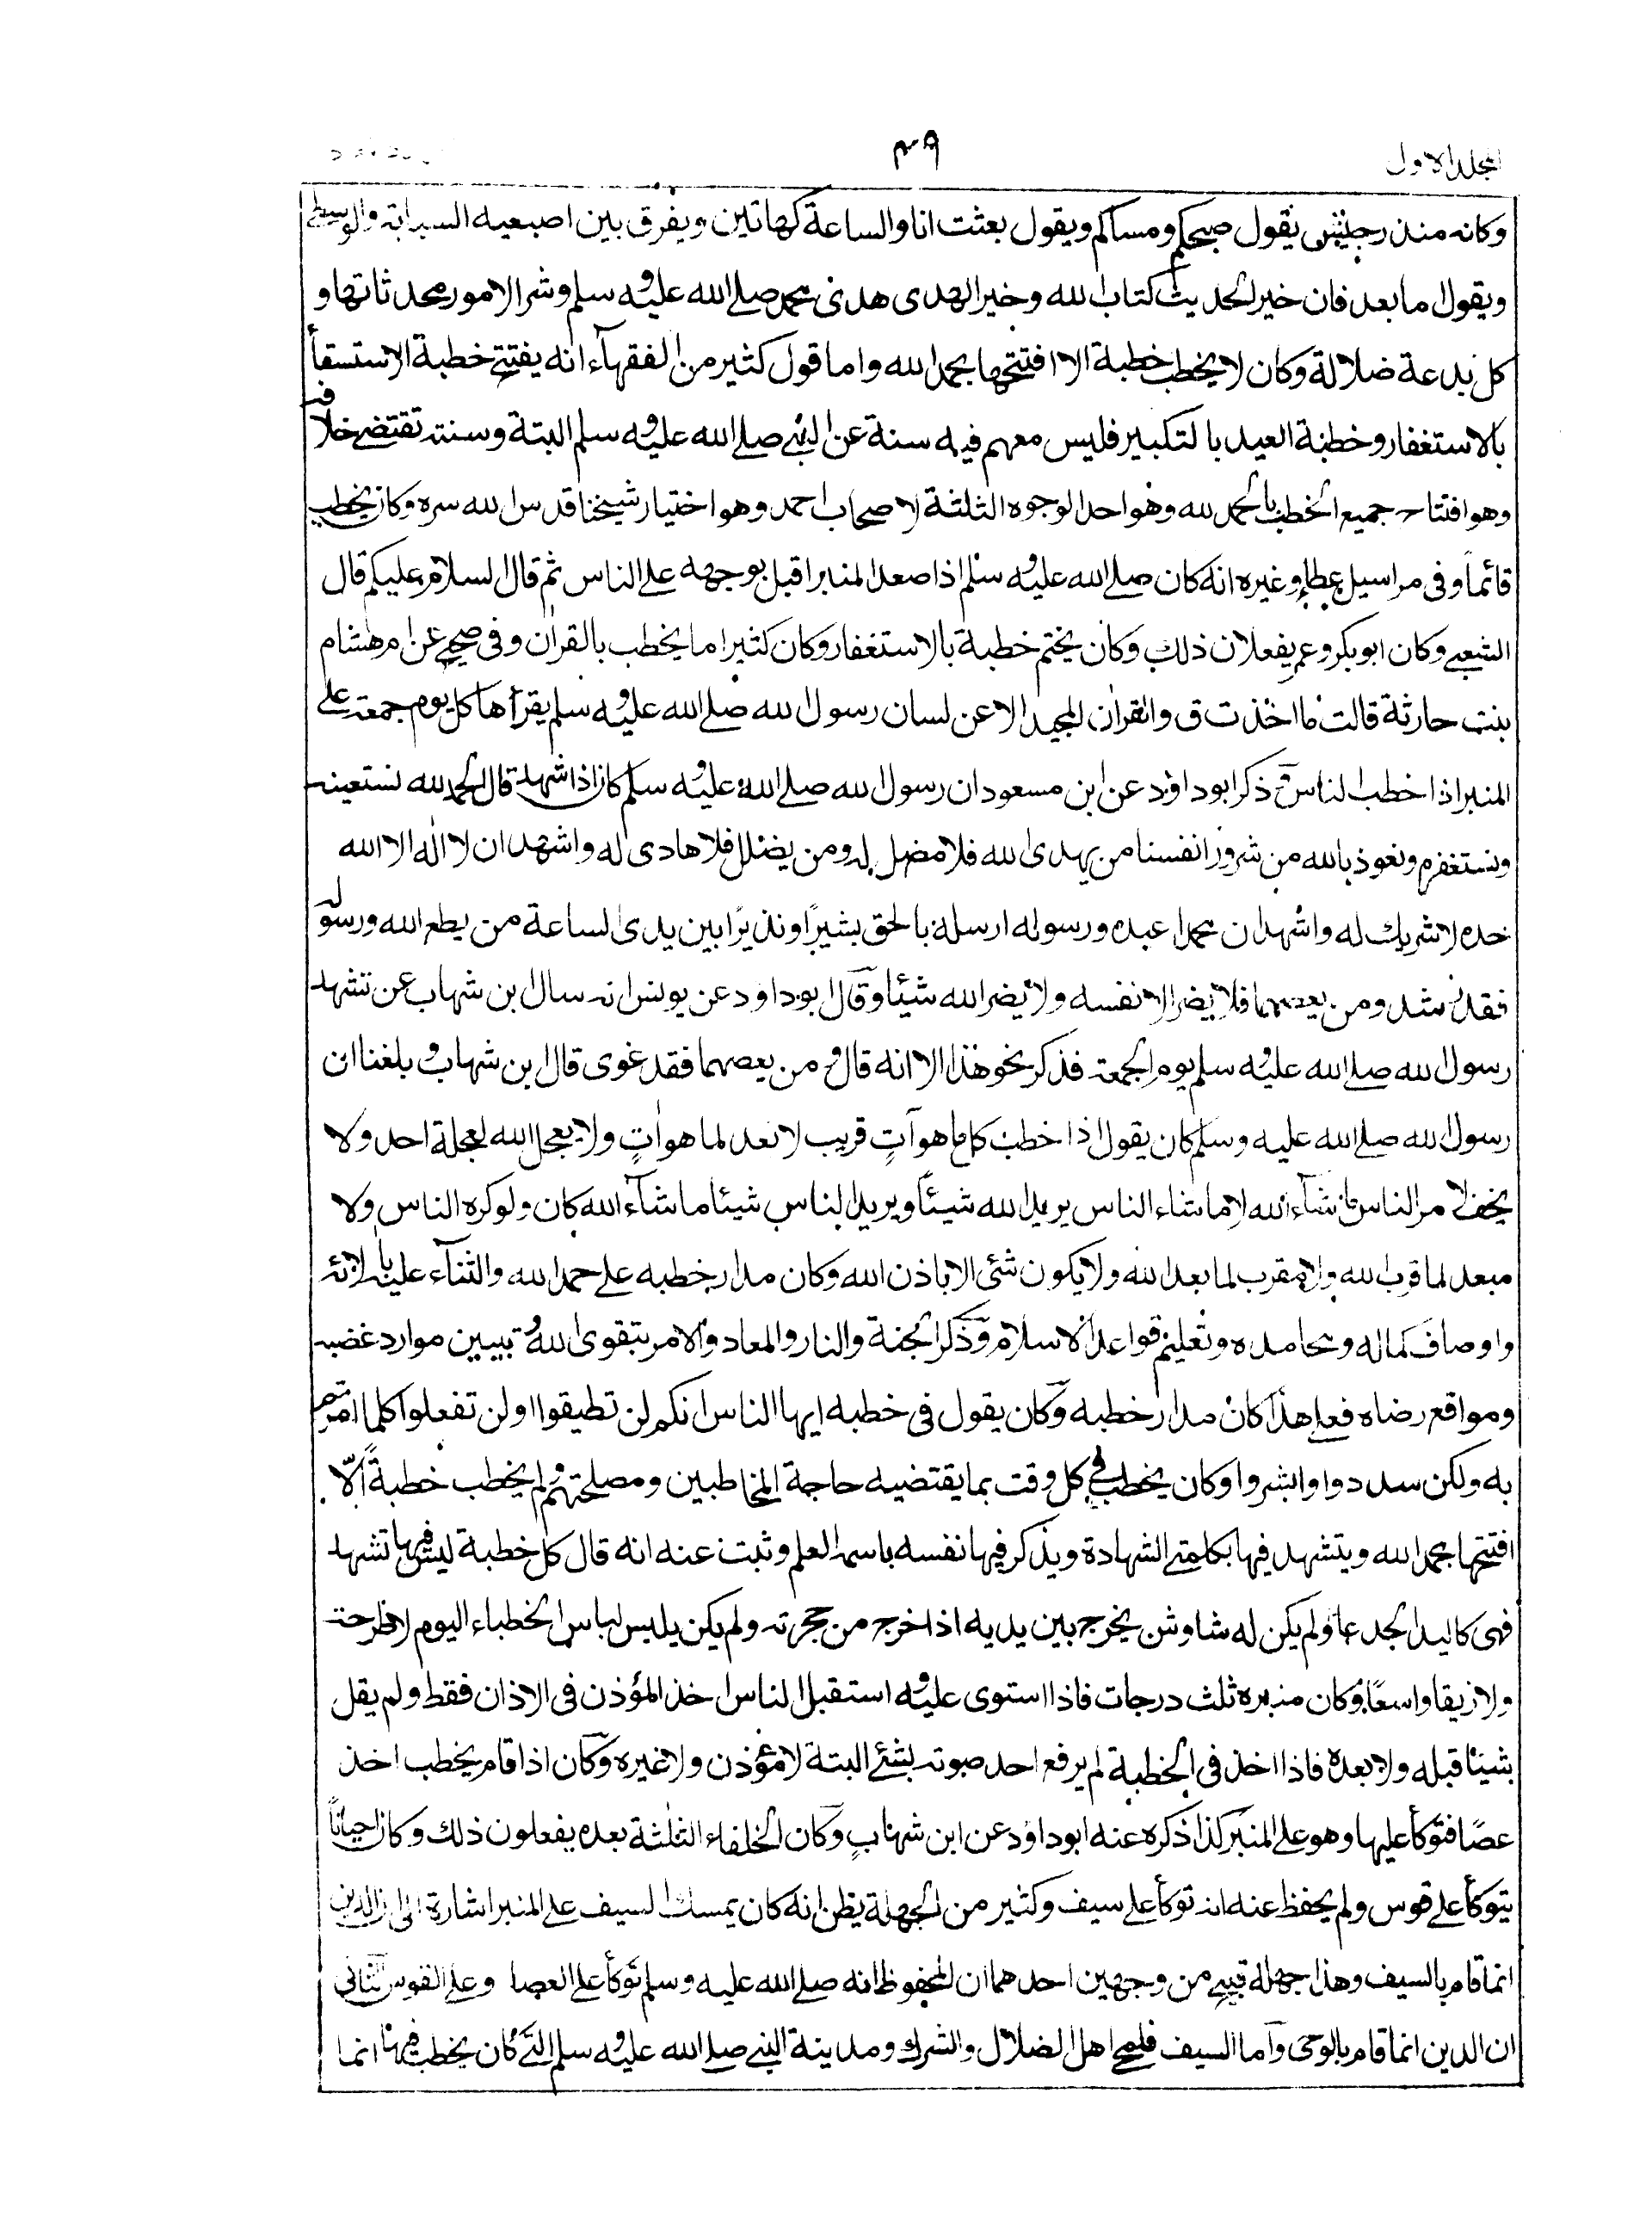 المجلد الاول
٤٩
وكانه منذر جيش يقول صبحكم ومساكم ويقول بعثت انا والساعة كهاتين ويفرق بين اصبعيه السبابة والوسطى
ويقول ما بعد فان خير الحديث كتاب الله وخير الهدى هدى محمد صلى الله عليه وسلم وشر الامور محدثاتها و
كل بدعة ضلالة وكان لا يخطب خطبة الا افتتحها بحمد الله واما قول كثير من الفقهاء انه يفتتح خطبة الاستسقاء
بالاستغفار وخطبة العيد بالتكبير فليس معهم فيه سنة عن النبى صلى الله عليه وسلم البتة وسنته تقتضى خلافه
وهو افتتاح جميع الخطب بالحمد لله وهو احد الوجوه الثلثة لاصحاب احمد وهو اختيار شيخنا قدس الله سره وكان يخطب
قائما وفى مراسيل عطاء وغيره انه كان صلى الله عليه وسلم اذا صعد المنبر اقبل بوجهه على الناس ثم قال السلام عليكم قال
الشعبى وكان ابوبكر وعمر يفعلان ذلك وكان يختم خطبة بالاستغفار وكان كثيرا ما يخطب بالقران وفى صحيح عن ام هشام
بنت حارثة قالت ما اخذت ق والقران المجيد الا عن لسان رسول الله صلى الله عليه وسلم يقرأها كل يوم جمعة على
المنبر اذا خطب الناس وذكر ابوداؤد عن ابن مسعود ان رسول الله صلى الله عليه وسلم كان اذا تشهد قال الحمد لله نستعينه
ونستغفره ونعوذ بالله من شرور انفسنا من يهدى الله فلا مضل له ومن يضلل فلا هادى له واشهد ان لا اله الا الله
حده لا شريك له واشهد ان محمدا عبده ورسوله ارسله بالحق بشيرا ونذيرا بين يدى الساعة من يطع الله ورسوله
فقد رشد ومن يعصهما فلا يضر الا نفسه ولا يضر الله شيئا وقال ابوداؤد عن يونس انه سال ابن شهاب عن تشهد
رسول الله صلى الله عليه وسلم يوم الجمعة فذكر نحو هذا الا انه قال ومن يعصهما فقد غوى قال ابن شهاب وبلغنا ان
رسول الله صلى الله عليه وسلم كان يقول اذا خطب كل ما هو آت قريب لا بعد لما هو ات ولا يعجل الله لعجلة احد ولا
يخف لامر الناس ما شاء الله لا ما شاء الناس يريد الله شيئا ويريد الناس شيئا ما شاء الله كان ولو كره الناس ولا
مبعد لما قرب الله ولا مقرب لما بعد الله ولا يكون شئ الا باذن الله وكان مدار خطبه على حمد الله والثناء عليه بالائه
واوصاف كماله ومحامده وتعليم قواعد الاسلام وذكر الجنة والنار والمعاد والامر بتقوى الله وتبيين موارد غضبه
ومواقع رضاه فعلى هذا كان مدار خطبه وكان يقول فى خطبه ايها الناس انكم لن تطيقوا او لن تفعلوا كلما امرتم
به ولكن سددوا وابشروا وكان يخطب فى كل وقت بما يقتضيه حاجة المخاطبين ومصلحتهم ولم يخطب خطبة الّا
افتتحها بحمد الله ويتشهد فيها بكلمتى الشهادة ويذكر فيها نفسه باسمه العلم وثبت عنه انه قال كل خطبة ليس فيها تشهد
فهى كاليد الجدعا ولم يكن له شاوش يخرج بين يديه اذا خرج من حجرته ولم يكن يلبس لباس الخطباء اليوم لا طرحة
ولا زيقا واسعا وكان منبره ثلث درجات فاذا استوى عليه استقبل الناس اخذ المؤذن فى الاذان فقط ولم يقل
شيئا قبله ولا بعده فاذا اخذ فى الخطبة لم يرفع احد صوته بشئ البتة لا مؤذن ولا غيره وكان اذا قام يخطب اخذ
عصا فتوكأ عليها وهو على المنبر كذا ذكره عنه ابوداؤد عن ابن شهاب وكان الخلفاء الثلثة بعده يفعلون ذلك وكان احيانا
يتوكأ على قوس ولم يحفظ عنه انه توكأ على سيف وكثير من الجهلة يظن انه كان يمسك السيف على المنبر اشارة الى ان الدين
انما قام بالسيف وهذا جهلة قبيح من وجهين احدهما ان المحفوظ انه صلى الله عليه وسلم توكأ على العصا وعلى القوس الثانى
ان الدين انما قام بالوحى واما السيف فلمحو اهل الضلال والشرك ومدينة النبى صلى الله عليه وسلم التى كان يخطب فيها انما